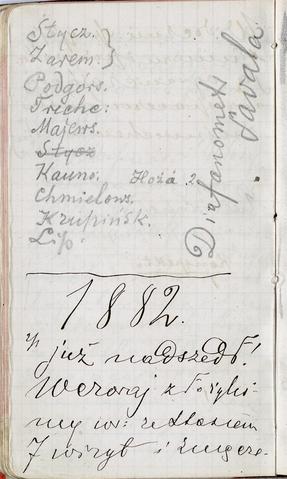 Stycz. }
Zarem: }
Podgórs.
Treche:
Majews.
Stycz
Kauno. Hoża 2
Chmielows.
Krupińsk.
Lip.
Diafanometr
Savala
1882.
już nadszedł!
Wczoraj złożyliś-
my w:
7 wizyt i